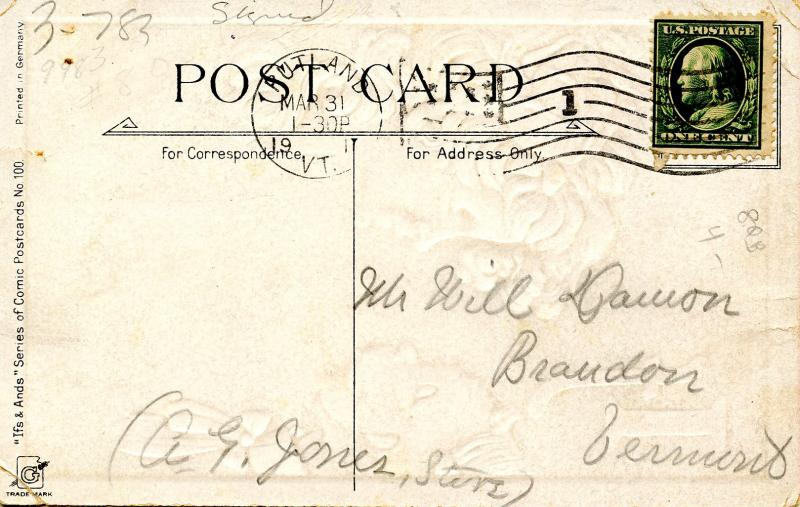 3-783
Signed
U.S. POSTAGE
ONE CENT
POST CARD
RUTLAND
MAR 31
1-30P
19 1
VT.
1
For Correspondence
For Address Only
Mr Will Damon
Brandon
Vermont
(A. G. Jones, Store)
"Ifs & Ands" Series of Comic Postcards No 100.
Printed in Germany
G
TRADE MARK